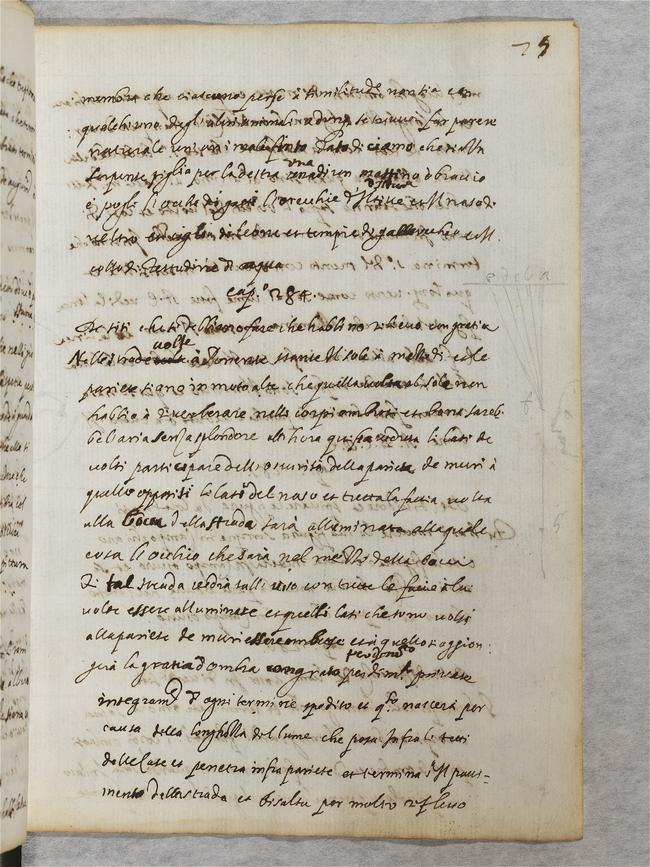 75
membra che ciascuno per se è similitudine non sia con
qualch'uno degli altri animali adunque se tu vuoi far parere
naturale un tuo animale finto diciamo che sia un
serpente piglia per la testa una di un mastino o bracco
e pogli li occhi di gatto l'orecchie d'istrice et il naso di
veltro et ciglia di leone et tempie di gallo vecchio et il
collo di testudine d'acqua
cap.º 284.
De visi che si debbono fare che habbino rilievo con gratia
Nelle strade volte à ponente stante il sole à mezzo dì et le
pariete siano in modo alte che quella volta al sole non
habbia à reverberare nelli corpi ombrati et buona sareb
be l'aria senza splendore all'hora qui sia veduta li lati de
volti participare dell'oscurità della pariete de muri à
quello oppositi et le lati del naso et tutta la facia volta
alla bocca della strada sarà alluminata alla quale
cosa l'occhio che sarà nel mezzo della bocca
di tal strada vedrà tal viso con tutte le facie à lui
volte essere alluminate et quelli lati che sono volti
alla pariete de muri essere ombrose et à quello s'aggion
gerà la gratia d'ombra con grato perdimento private
integramente d'ogni termine spedito et questo nascerà per
causa della longhezza del lume che passa infra le tetti
delle case et penetra infra pariete et termina s'il pavi-
mento della strada et risalta per moto reflesso